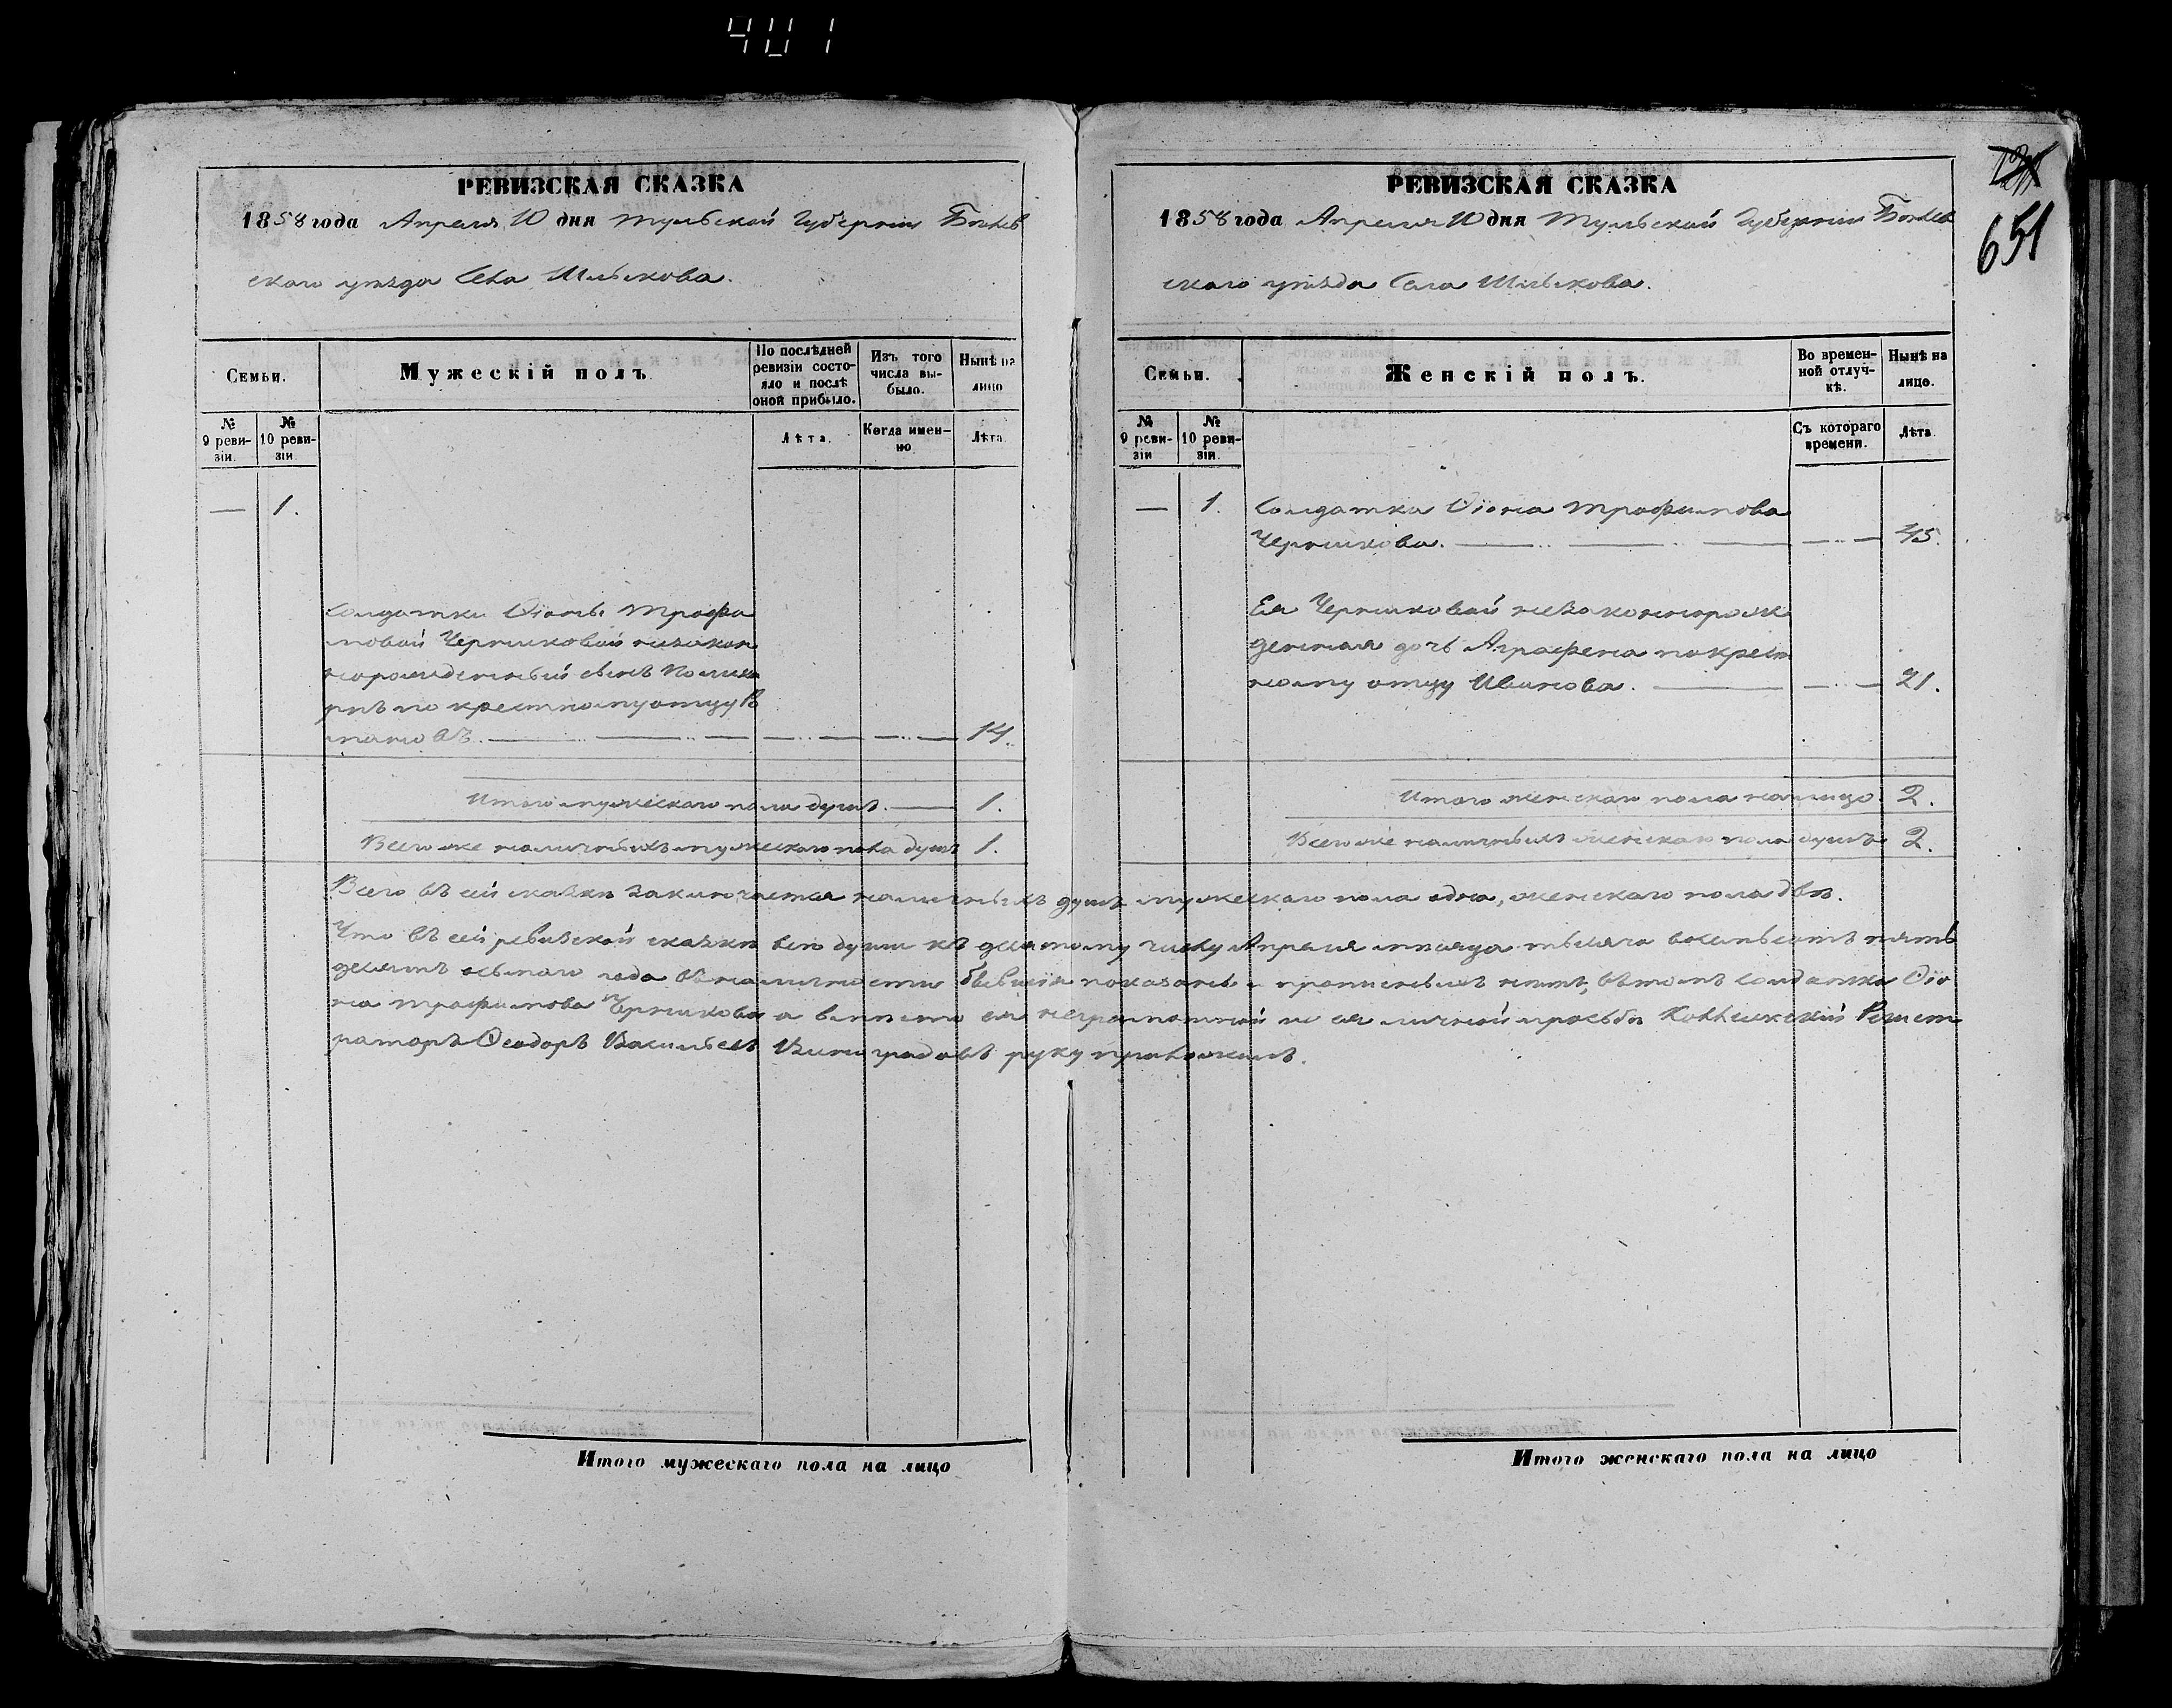 401
651
РЕВИЗСКАЯ СКАЗКА
1858 года Апреля 10 дня Тульской Губернiи Бѣлев
скаго уѣзда Села
Семьи.
Мужескiй полъ
По послѣдней ревизiи состо-яло и послѣ оной прибыло.
Изъ того числа вы-было.
Нынѣ на лицо
№ 9 реви-зiи.
№ 10 реви-зiи
Лѣта.
Когда имен-но
Лѣта
— 1.
Солдатки Ѳiоны Трофи
мовой Черниковой незакон
норожденный сынъ
по крестному отцу
14.
Итого мужескаго пола душъ. — 1.
Всего же наличныхъ мужескаго пола душъ 1.
Итого мужескаго пола на лицо
РЕВИЗСКАЯ СКАЗКА
1858 года Апреля 10 дня Тульской Губернiи Бѣлев
скаго уѣзда Села
Семьи.
Женскiй полъ.
Во времен-ной отлуч-кѣ.
Нынѣ на лице.
№ 9 реви-зiи
№ 10 реви-зiи.
Съ котораго времени.
Лѣта.
— 1. Солдатка Ѳiона Трофимова
Черникова. 45.
Ея Черниковой незаконнорож
денная дочь Аграфена по крест
ному отцу Иванова. 21.
Итого женскаго пола на лицо. 2.
Всего же наличныхъ женскаго пола душъ 2.
Итого женскаго пола на лицо
Всего въ сей сказкѣ заключается наличныхъ душъ мужескаго пола одна, женскаго пола двѣ.
Что въ сей ревизской сказкѣ всѣ души къ десятому числу Апреля мѣсяца тысяча восемьсотъ пять
десятъ осьмаго года въ наличности бывшiя показаны и прописныхъ нѣтъ, въ томъ солдатка Ѳiо
на Трофимова Черникова а вмѣсто ея неграмотной по ея личной прозьбѣ Коллежскiй Регист
раторъ Ѳеодоръ Васильевъ Виноградовъ руку приложилъ.